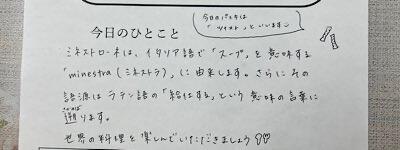 今日のひとこと
今日のパスタは
「ツイスト」といいます
ミネストローネは、イタリア語で「スープ」を意味する
「minestra(ミネストラ)」に由来します。さらにその
語源はラテン語の「給仕する」という意味の言葉に
さかのぼ
遡ります。
世界の料理を楽しんでいただきましょう